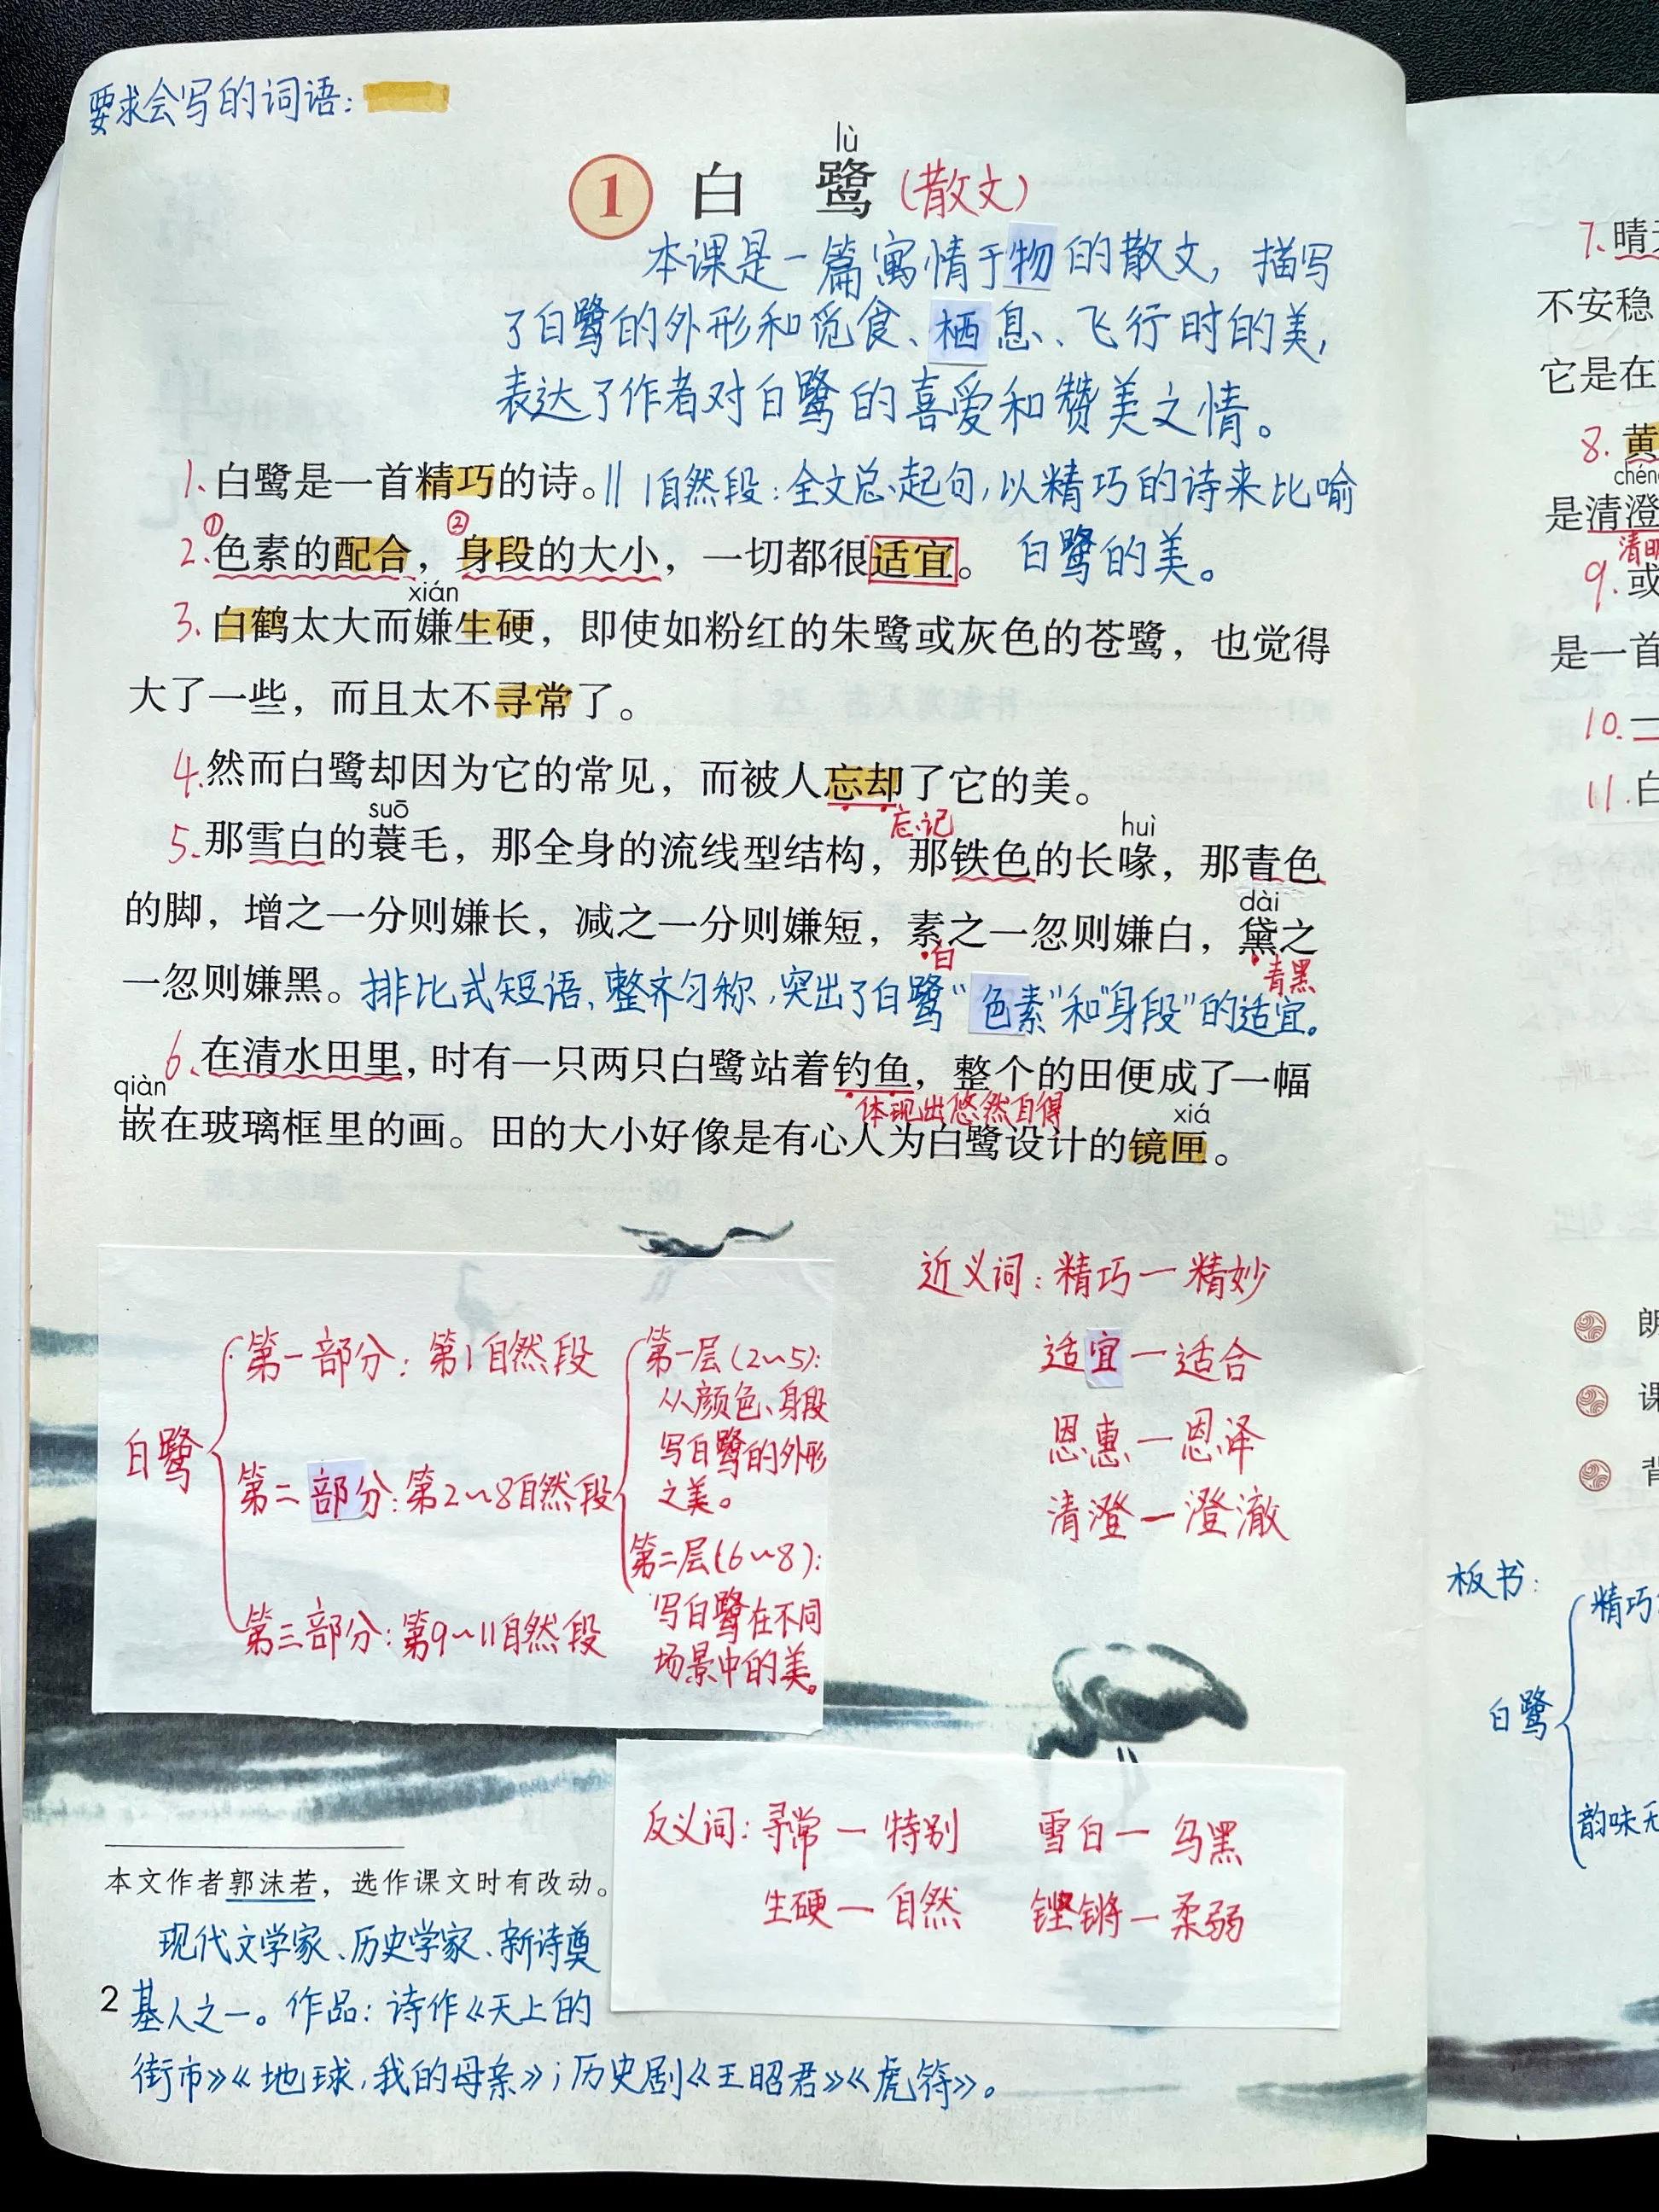 要求会写的词语:
lù
1 白鹭(散文)
本课是一篇寓情于物的散文,描写
了白鹭的外形和觅食、栖息、飞行时的美,
表达了作者对白鹭的喜爱和赞美之情。
1、白鹭是一首精巧的诗。‖1自然段:全文总起句,以精巧的诗来比喻
白鹭的美。
① ②
2、色素的配合,身段的大小,一切都很适宜。
xián
3、白鹤太大而嫌生硬,即使如粉红的朱鹭或灰色的苍鹭,也觉得
大了一些,而且太不寻常了。
4、然而白鹭却因为它的常见,而被人忘却了它的美。
忘记
suō huì
5、那雪白的蓑毛,那全身的流线型结构,那铁色的长喙,那青色
dài
的脚,增之一分则嫌长,减之一分则嫌短,素之一忽则嫌白,黛之
白 青黑
一忽则嫌黑。排比式短语、整齐匀称,突出了白鹭“色素”和“身段”的适宜。
6、在清水田里,时有一只两只白鹭站着钓鱼,整个的田便成了一幅
体现出悠然自得
qiàn xiá
嵌在玻璃框里的画。田的大小好像是有心人为白鹭设计的镜匣。
白鹭
第一部分:第1自然段
第二部分:第2~8自然段
第三部分:第9~11自然段
第一层(2~5):
从颜色、身段
写白鹭的外形
之美。
第二层(6~8):
写白鹭在不同
场景中的美。
近义词:精巧—精妙
适宜—适合
恩惠—恩泽
清澄—澄澈
反义词:寻常—特别 雪白—乌黑
生硬—自然 铿锵—柔弱
本文作者郭沫若,选作课文时有改动。
现代文学家、历史学家、新诗奠
基人之一。作品:诗作《天上的
街市》《地球,我的母亲》;历史剧《王昭君》《虎符》。
2
7、晴
不安稳
它是在
8、黄
chéng
是清澄
清明
9、或
是一首
10、一
11、白
朗
课
背
板书:
白鹭
精巧
韵味无